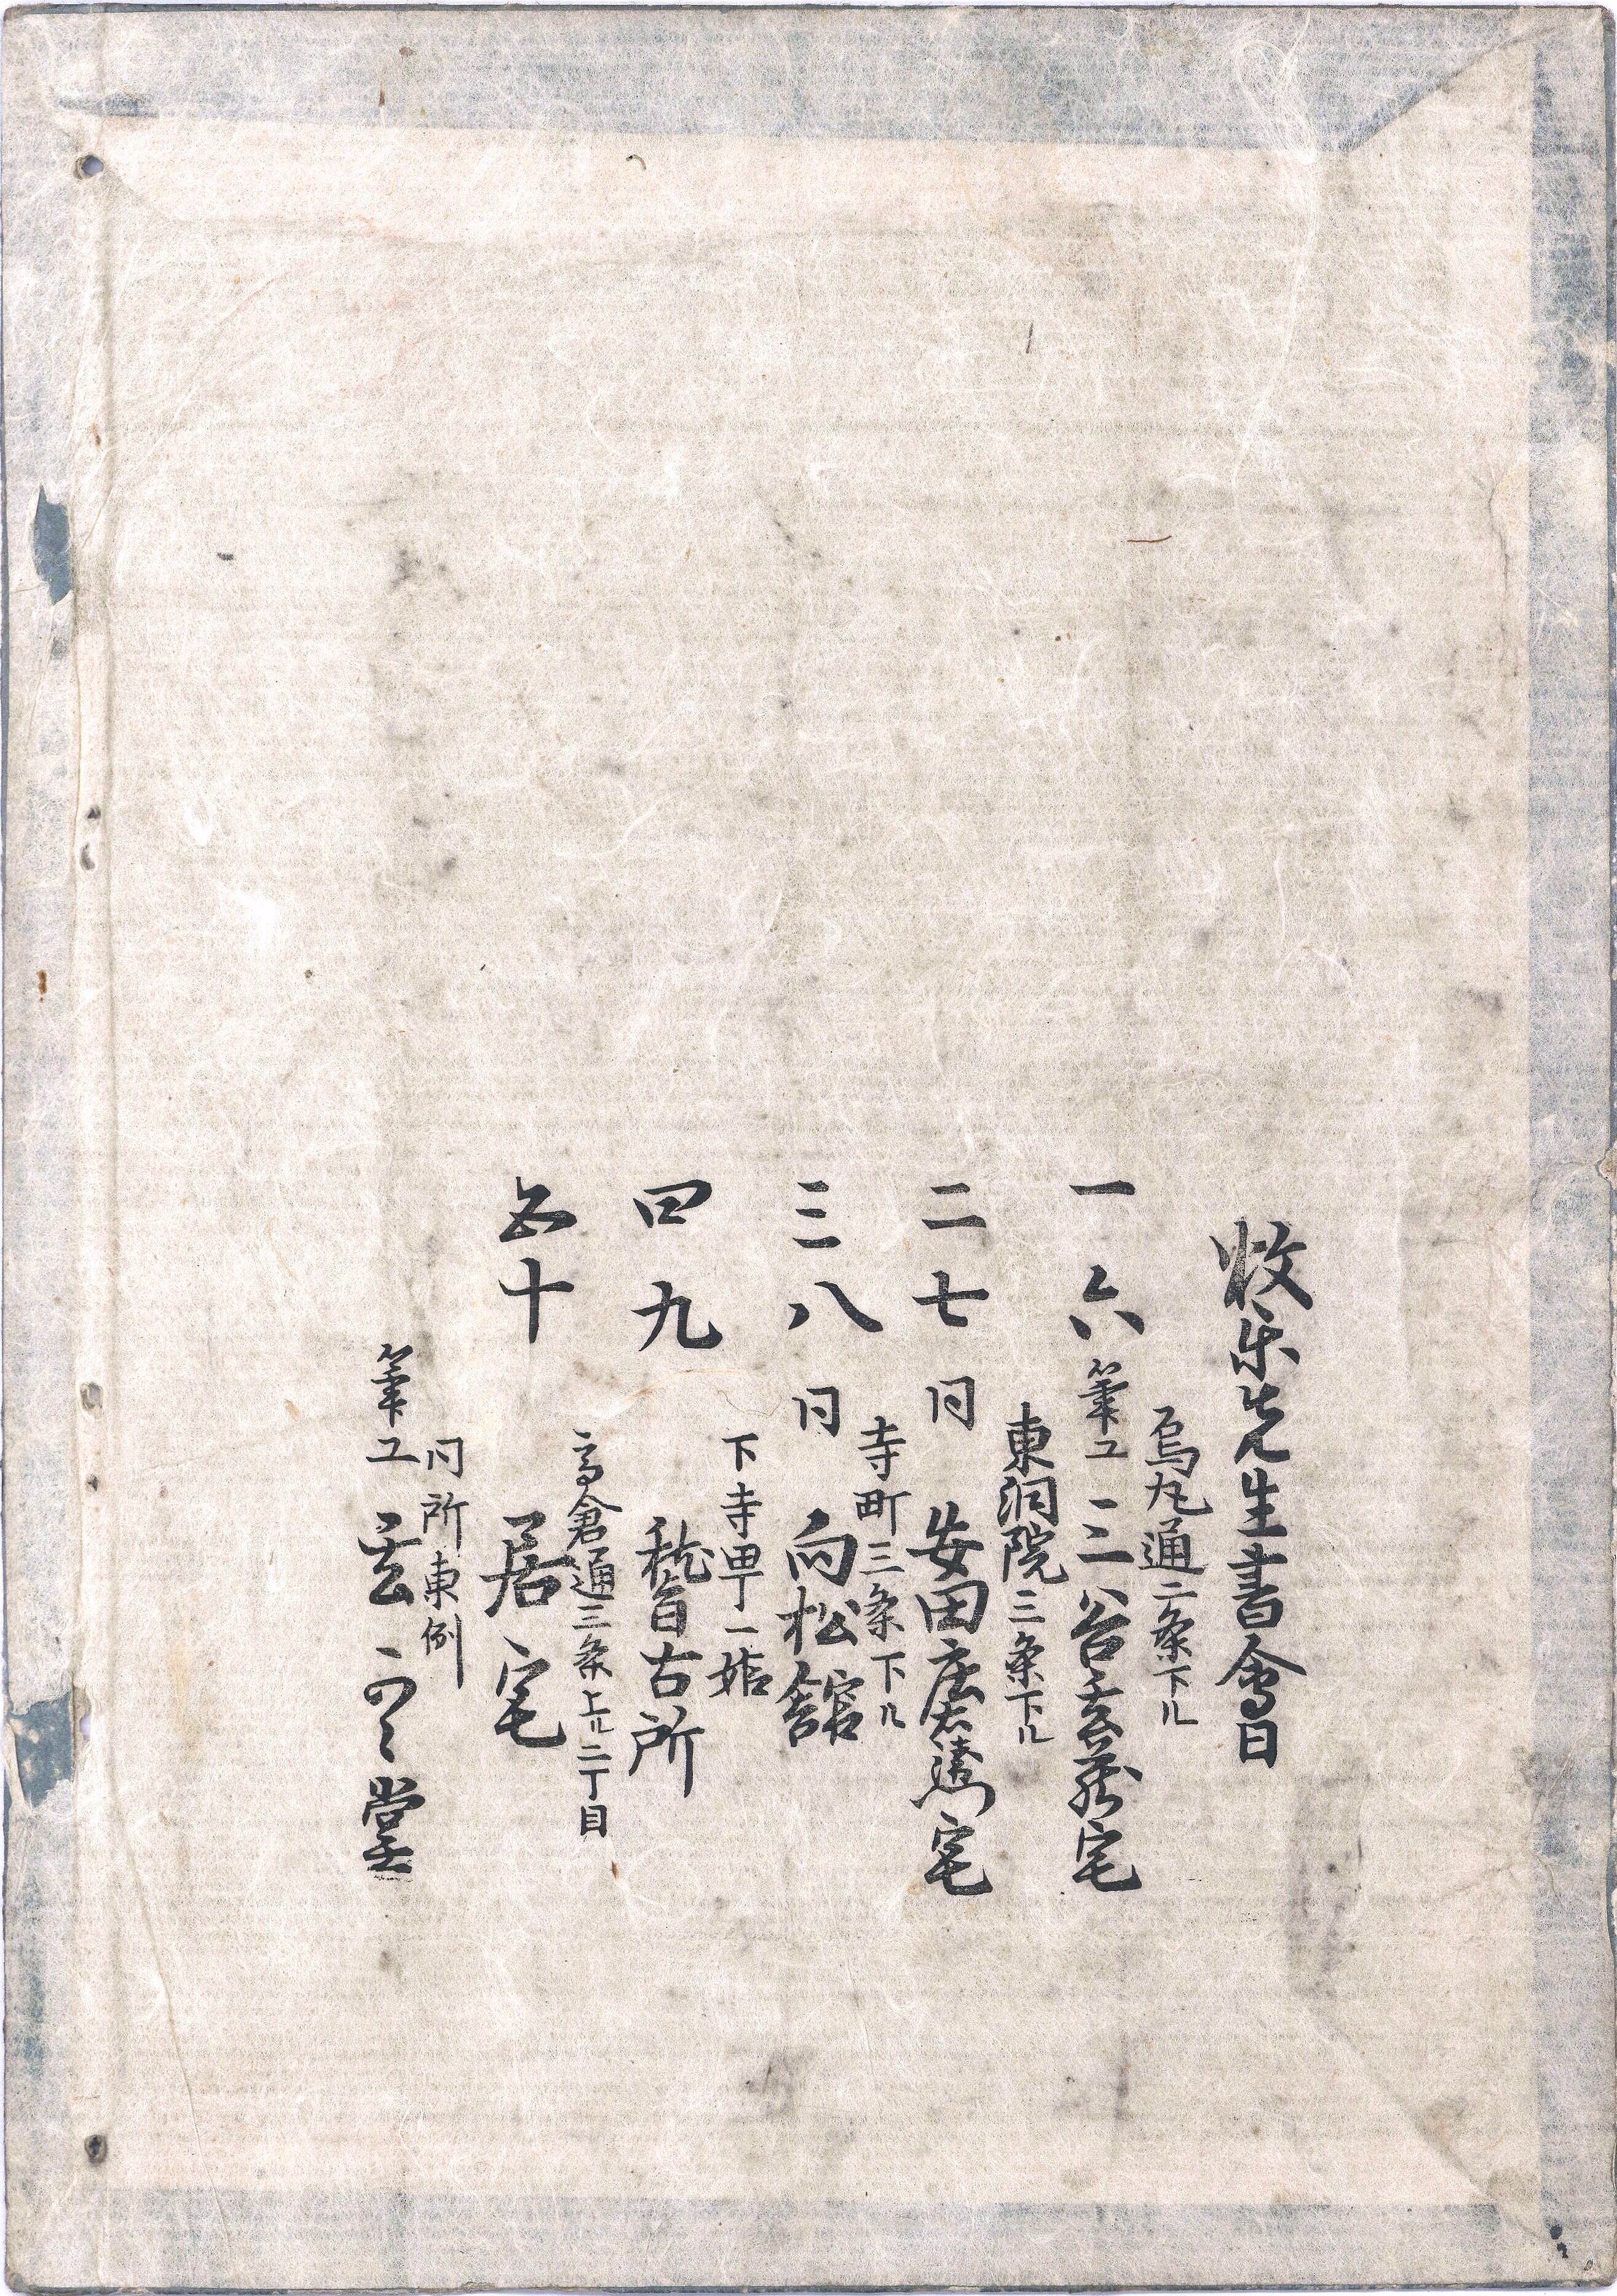 牧楽先生書會日
烏丸通二条下ル
一六 筆工 三谷玄蔵宅
東洞院三条下ル
二七 同 安田庄右衛門宅
寺町三条下ル
三八 同 向松舘
下寺甼一姑
四九 稽古所
高倉通三条上ル二丁目
五十 居宅
同所東側
筆工 玄々堂